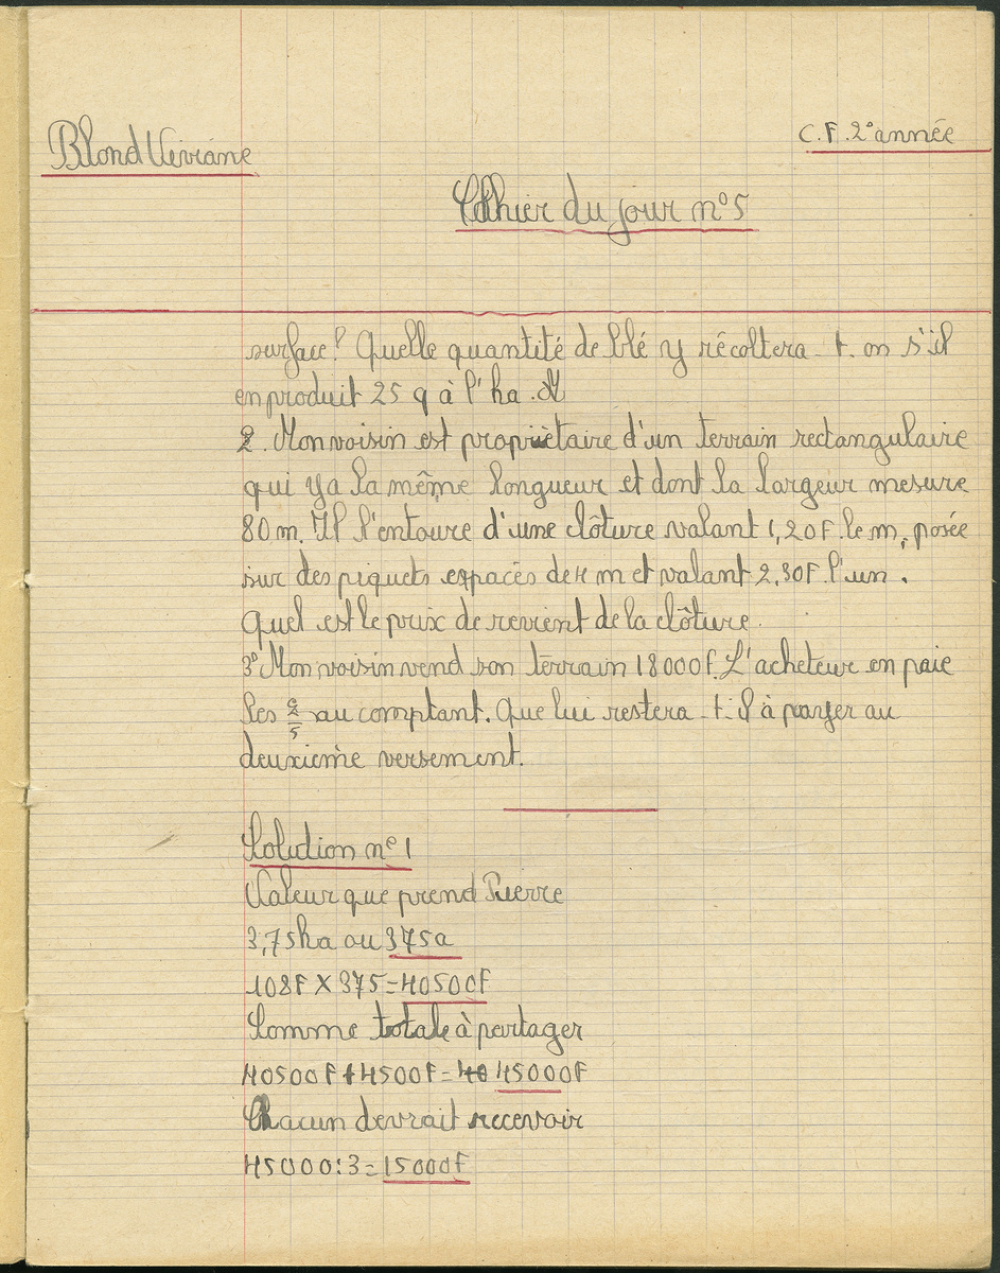 Blond Viviane
C.F. 2° année
Cahier du jour n°5
surface? Quelle quantité de blé y récoltera-t-on s'il
en produit 25 q à l'ha.
2. Mon voisin est propriètaire d'un terrain rectangulaire
qui y a la même longueur et dont la largeur mesure
80 m. Il l'entoure d'une clôture valant 1,20F. le m, posée
sur des piquets espacés de 4 m et valant 2,30F. l'un.
Quel est le prix de revient de la clôture.
3° Mon voisin vend son terrain 18000F. L'acheteur en paie
les 2/5 au comptant. Que lui restera-t-il à payer au
deuxième versement.
Solution n° 1
Valeur que prend Pierre
3,75ha ou 375a
108F X 375 = 40500F
Somme totale à partager
40500F + 4500F = 40 45000F
Chacun devrait recevoir
45000 : 3 = 15000F